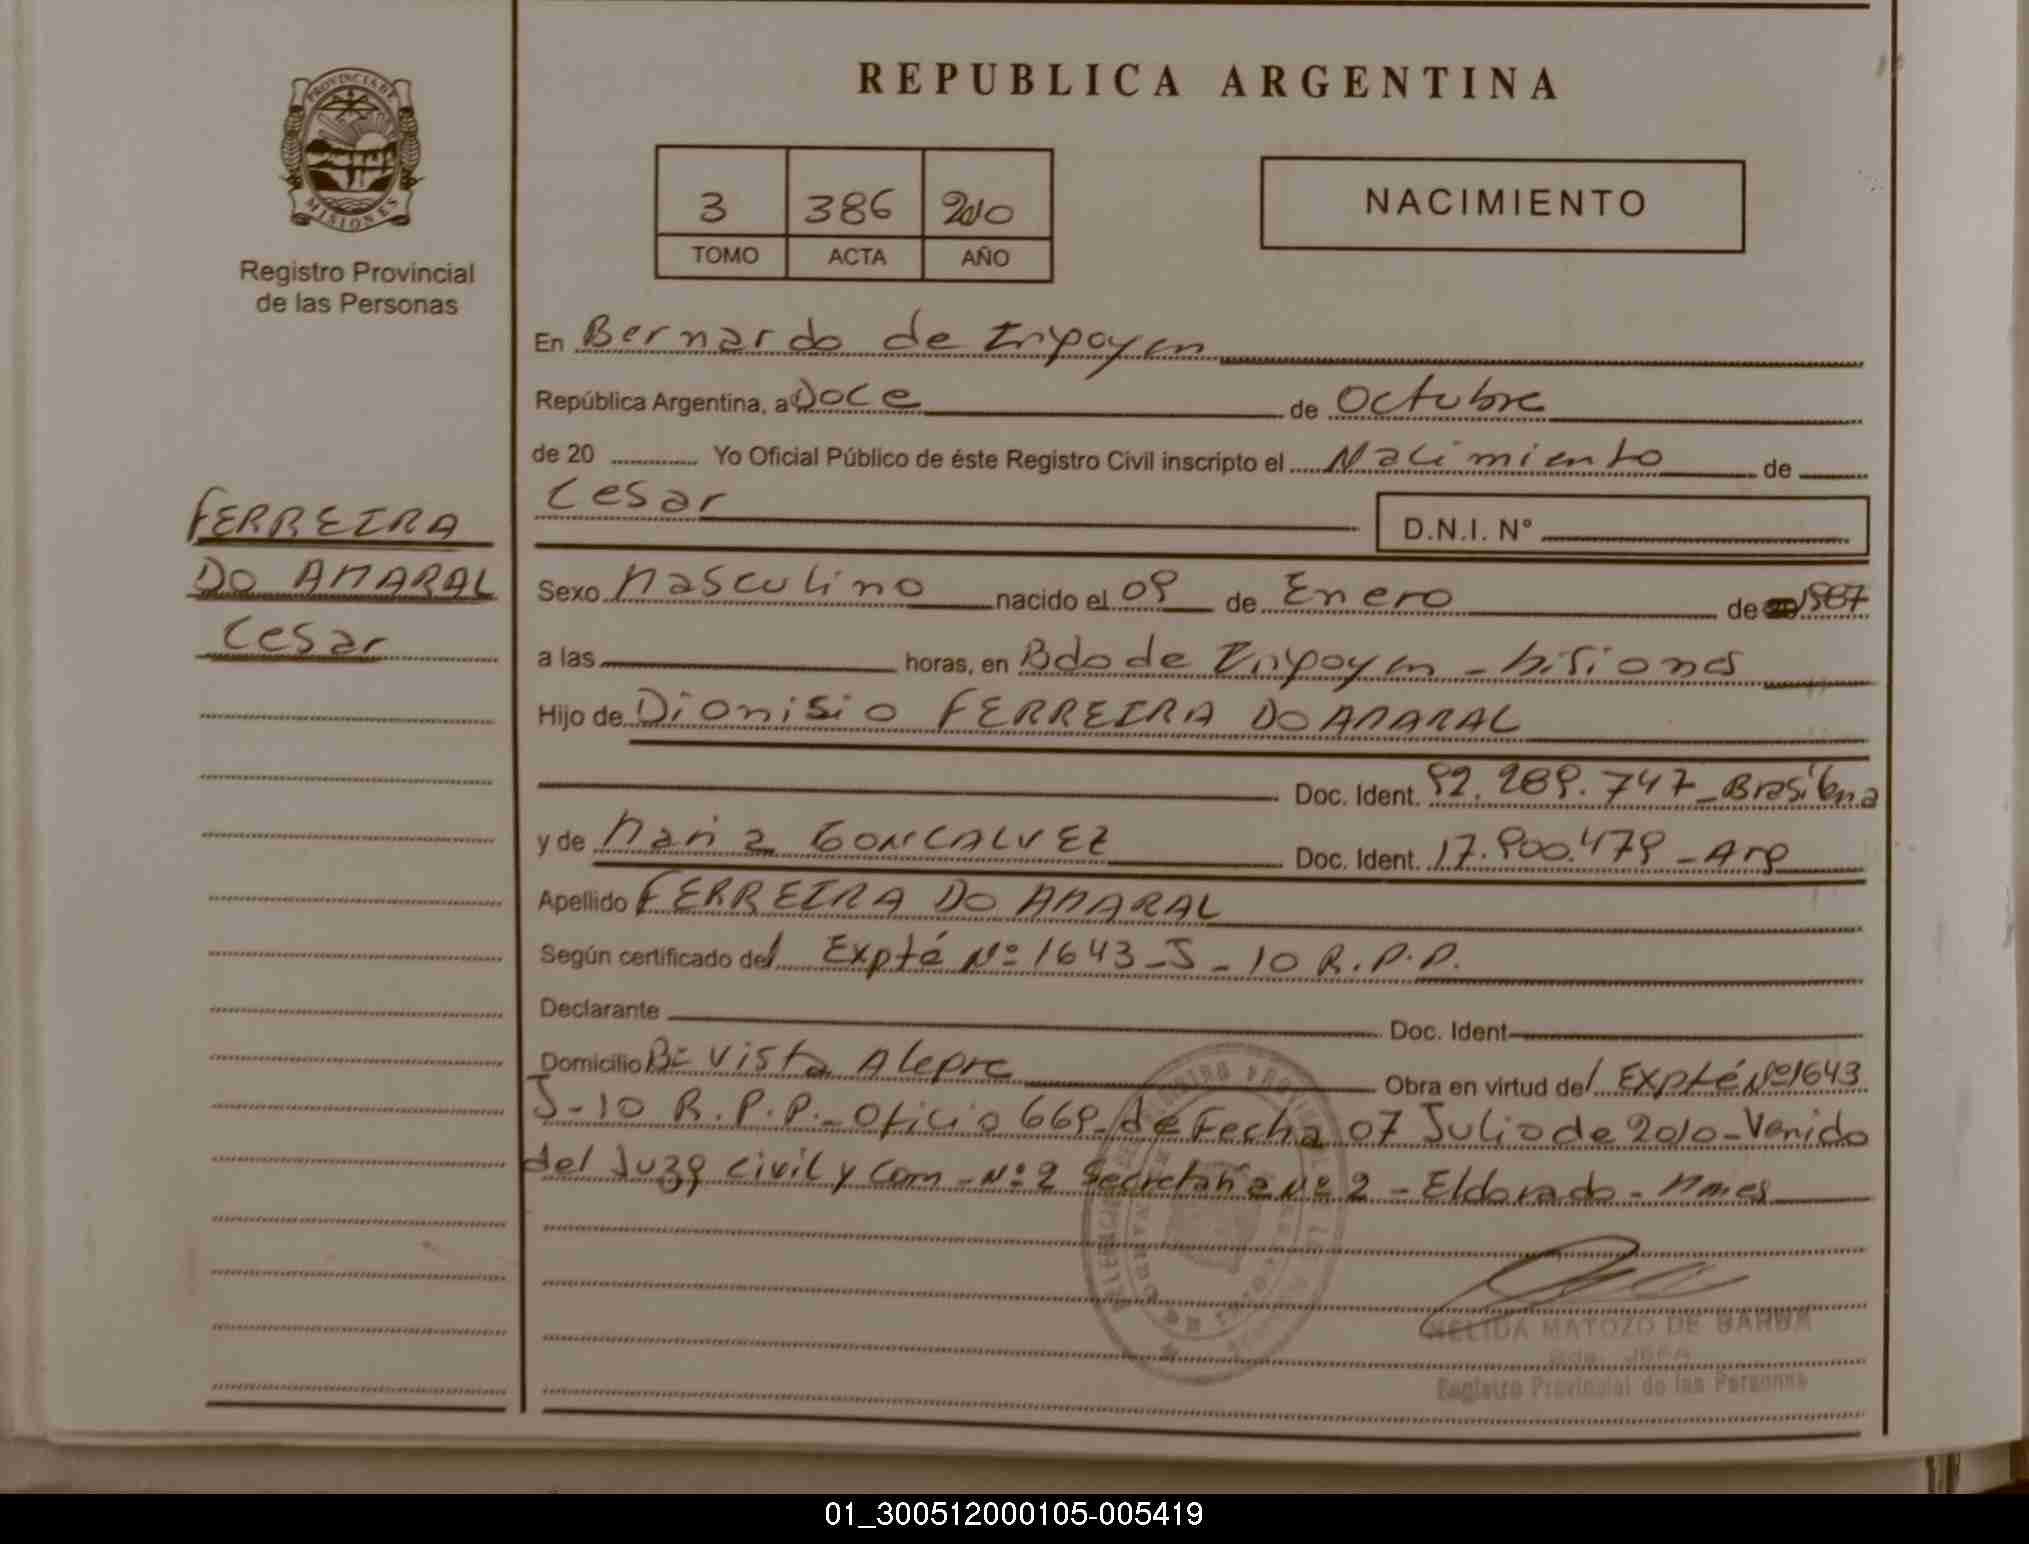 REPUBLICA ARGENTINA
PROVINCIA DE
MISIONES
Registro Provincial
de las Personas
3 386 2010
TOMO ACTA AÑO
NACIMIENTO
En Bernardo de Irigoyen
República Argentina, a Doce de Octubre
de 20 Yo Oficial Público de éste Registro Civil inscripto el Nacimiento de
Cesar D.N.I. Nº
FERREIRA
DO AMARAL
Cesar
Sexo Masculino nacido el 09 de Enero de 1987
a las horas, en Bdo de Irigoyen - Misiones
Hijo de Dionisio FERREIRA DO AMARAL
Doc. Ident. 92.289.747 - Brasilena
y de Maria GONCALVEZ Doc. Ident. 17.900.479 - Arg
Apellido FERREIRA DO AMARAL
Según certificado del Expté Nº 1643 - J - 10 R.P.P.
Declarante Doc. Ident
Domicilio Bº Vista Alegre Obra en virtud del Expté Nº 1643
J - 10 R.P.P. - Oficio 669 - de Fecha 07 Julio de 2010 - Venido
del Juzg Civil y Com - Nº 2 Secretaría Nº 2 - Eldorado - Mnes
NELIDA MATOZO DE
JEFA
Registro Provincial de las Personas
01_300512000105-005419